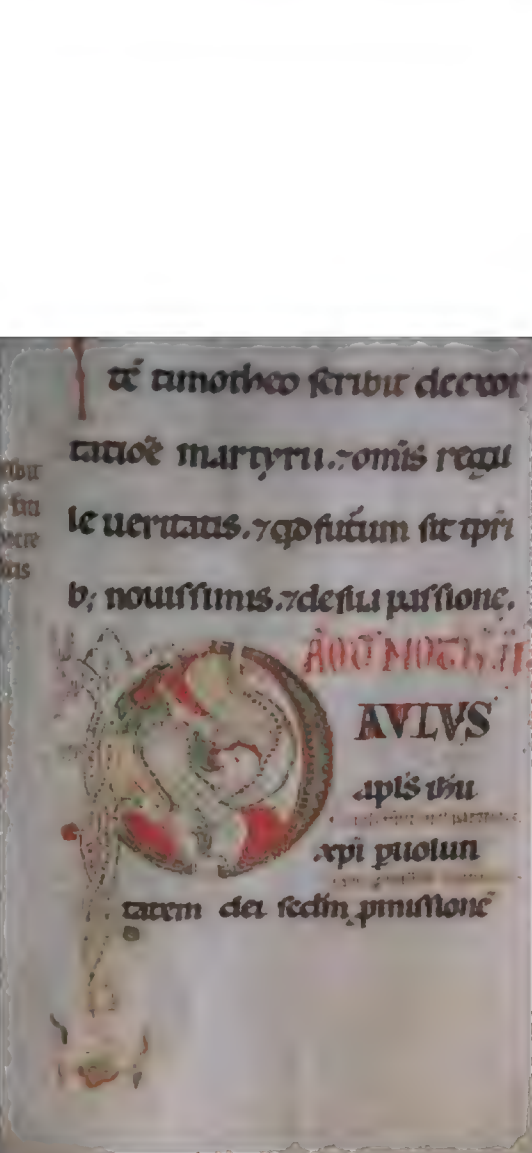 tē timotheo scribit de exor
tatiōe martyrū. ⁊ omīs regu
le ueritatis. ⁊ qđ futūrum sit tpri
b; nouissimis. ⁊ de sua passione.
AD
PAVLVS
apls ihu
xpi p uolun
tatem dei scdm pmissionē